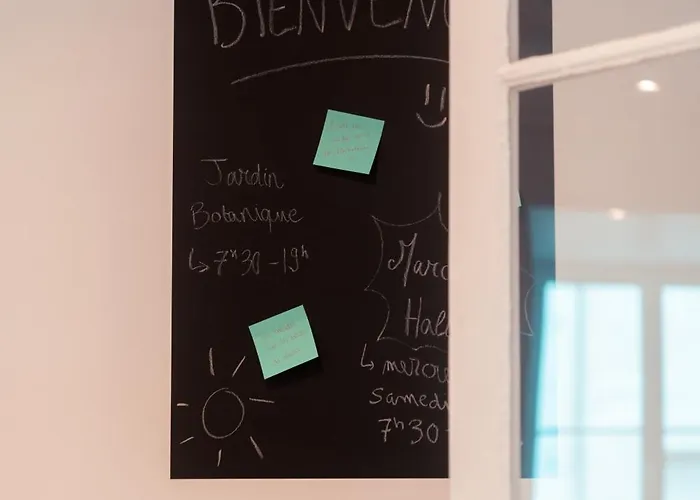 BIENVEN
Jardin
Botanique
↳ 7h30 - 19h
Marc
Hal
↳ mercre
Samed
7h30 -